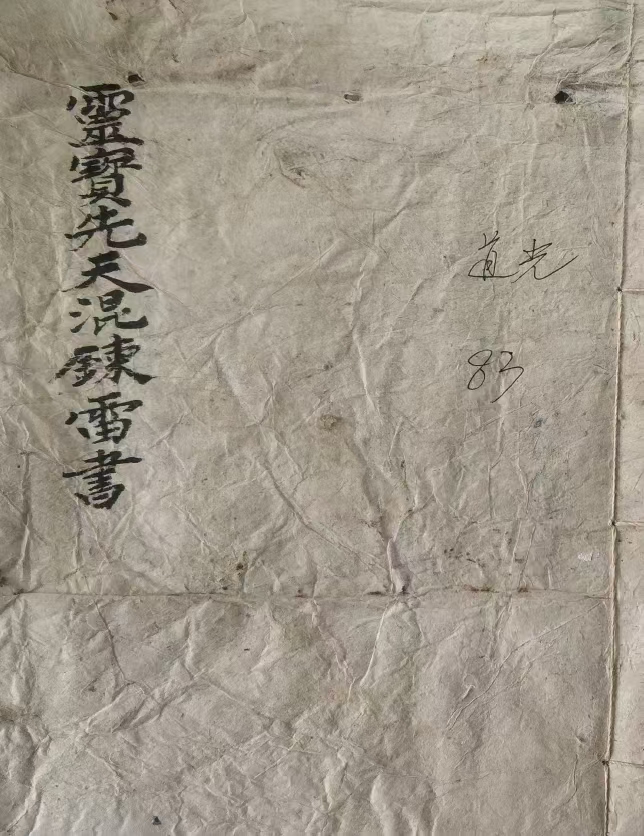 靈寶先天混鍊雷書
道光
83